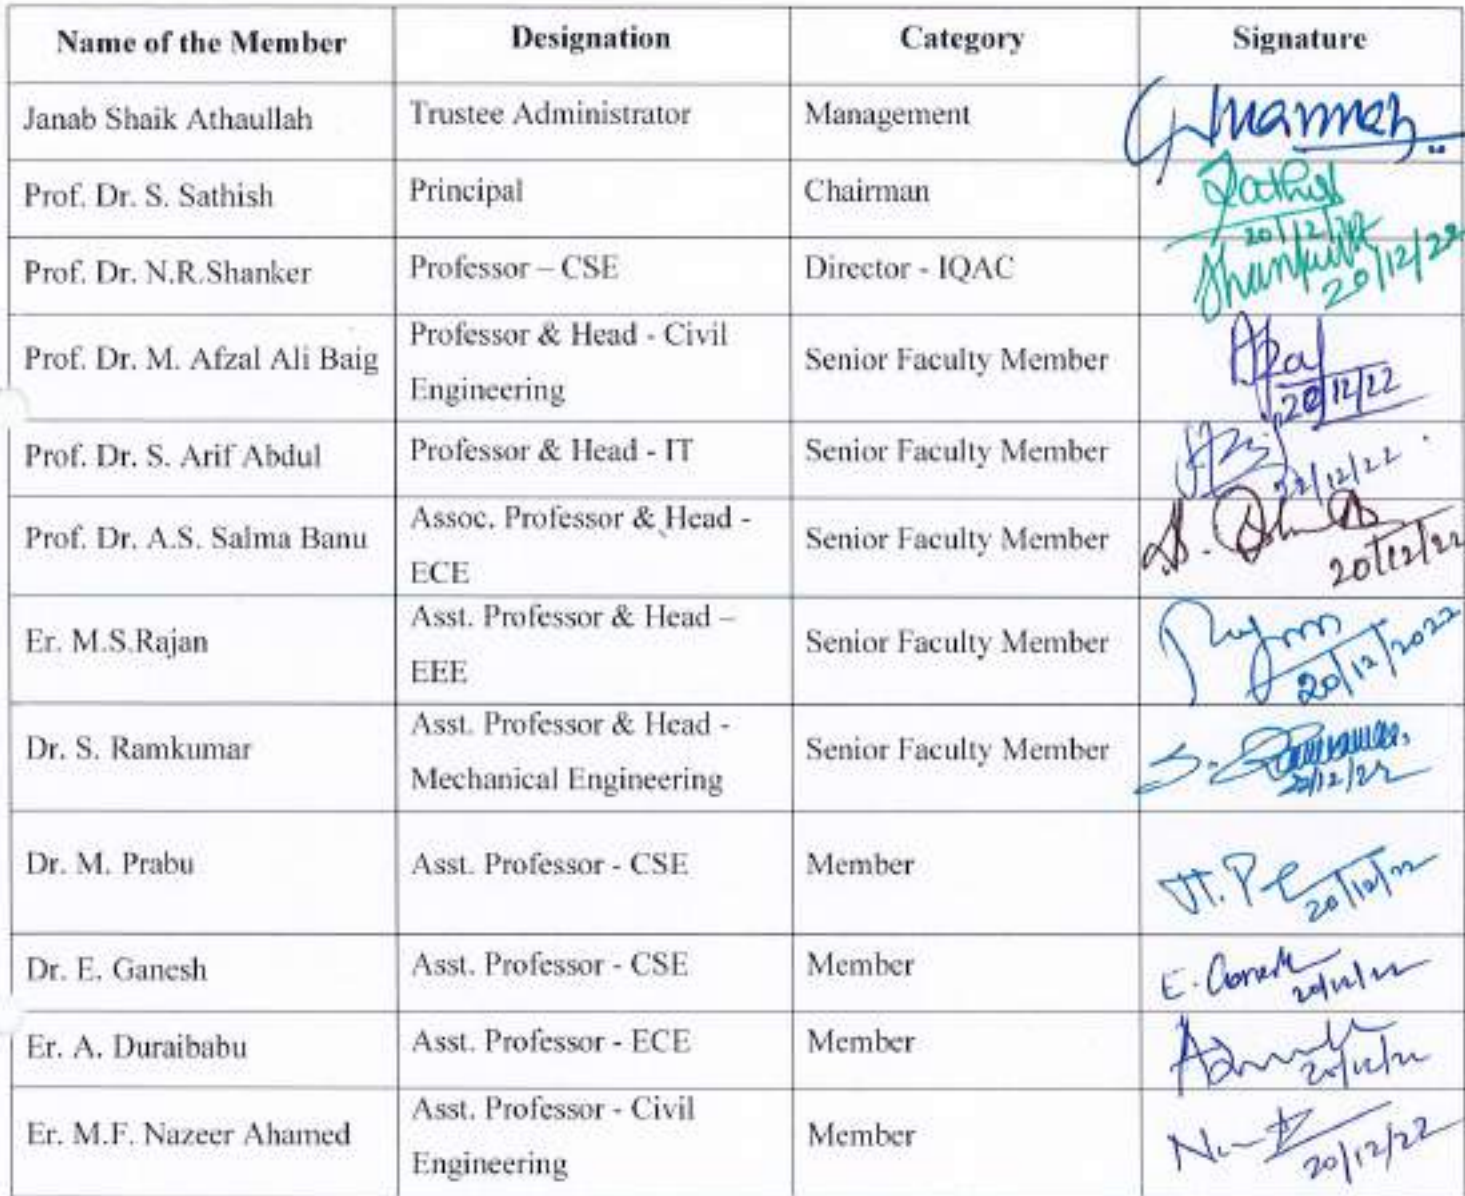 Name of the Member Designation Category Signature
Janab Shaik Athaullah Trustee Administrator Management
Prof. Dr. S. Sathish Principal Chairman Sathish
20/12/22
Prof. Dr. N.R.Shanker Professor – CSE Director - IQAC
20/12/22
Prof. Dr. M. Afzal Ali Baig Professor & Head - Civil Senior Faculty Member
Engineering 20/12/22
Prof. Dr. S. Arif Abdul Professor & Head - IT Senior Faculty Member
/12/22
Prof. Dr. A.S. Salma Banu Assoc. Professor & Head - Senior Faculty Member
ECE 20/12/22
Er. M.S.Rajan Asst. Professor & Head – Senior Faculty Member
EEE 20/12/2022
Dr. S. Ramkumar Asst. Professor & Head - Senior Faculty Member
Mechanical Engineering 20/12/22
Dr. M. Prabu Asst. Professor - CSE Member
20/12/22
Dr. E. Ganesh Asst. Professor - CSE Member E. Ganesh
20/12/22
Er. A. Duraibabu Asst. Professor - ECE Member
20/12/22
Er. M.F. Nazeer Ahamed Asst. Professor - Civil Member
Engineering 20/12/22